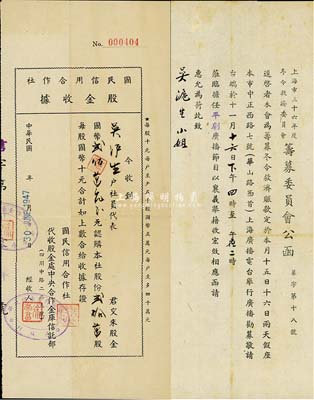 No. 000404
國民信用合作社
股金收據
今收到
吳滬生戶社員代表 君交來股金
國幣貳佰萬元正認購本社股份貳拾萬股
每股國幣十元合計如上數合給收據存證
國民信用合作社
代收股金處中央合作金庫信託部
經收人
中華民國 年 月 日
上海市三十六年度
冬令救濟委員會
籌募委員會公函
募字第十八號
逕啓者本會為籌募冬令救濟賑款定於本月十五日十六日兩天假座
本市中正西路七號(華山路西首)上海廣播電台舉行廣播勸募敬請
台端於十一月十六日下午四時至 時
蒞臨擔任平劇廣播節目以襄義舉藉收宏效相應函請
惠允為荷此致
吳滬生小姐